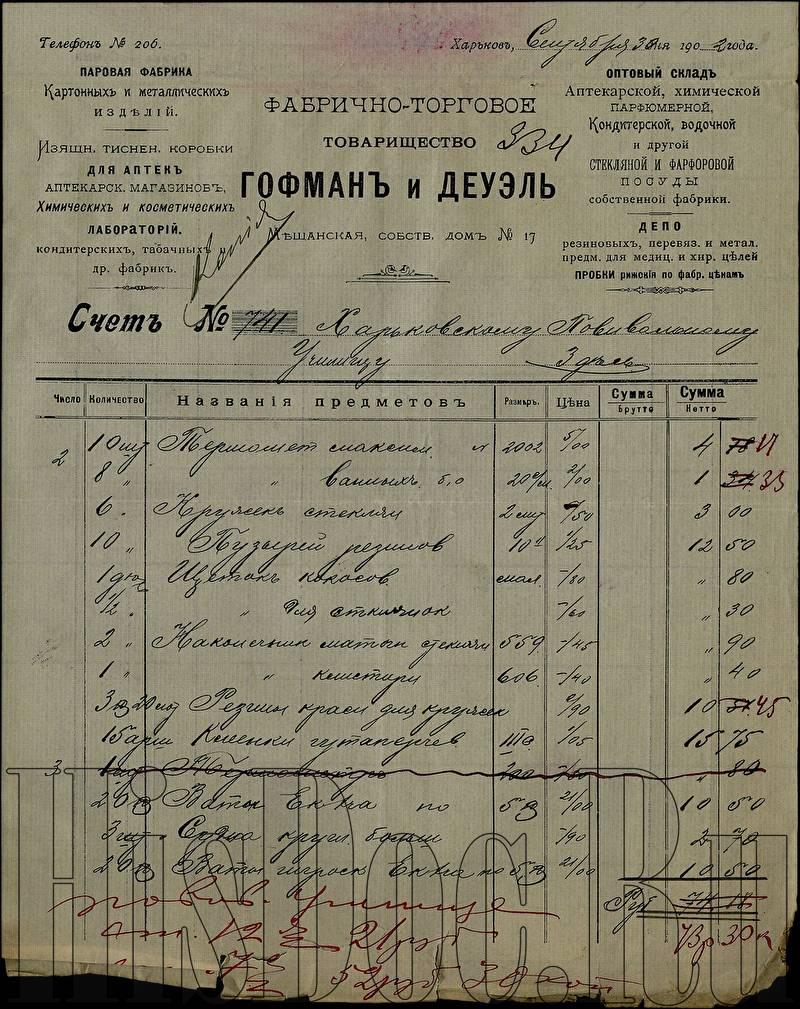 Телефонъ № 206.
Харьковъ, Сентября 30 дня 1902 года.
ПАРОВАЯ ФАБРИКА
Картонныхъ и металлическихъ
ИЗДѢЛІЙ.
Изящн. тиснен. коробки
ДЛЯ АПТЕКЪ
АПТЕКАРСК. МАГАЗИНОВЪ,
Химическихъ и косметическихъ
ЛАБОРАТОРІЙ.
кондитерскихъ, табачныхъ и
др. фабрик.
ФАБРИЧНО-ТОРГОВОЕ
ТОВАРИЩЕСТВО
334
ГОФМАНЪ и ДЕУЭЛЬ
Мѣщанская, собств. домъ № 17
ОПТОВЫЙ СКЛАДЪ
Аптекарской, химической
ПАРФЮМЕРНОЙ,
Кондитерской, водочной
и другой
СТЕКЛЯНОЙ И ФАРФОРОВОЙ
ПОСУДЫ
собственной фабрики.
ДЕПО
резиновыхъ, перевяз. и метал.
предм. для медиц. и хир. цѣлей
ПРОБКИ рижскія по фабр. цѣнамъ
Копія
Счетъ № 741 Харьковскому Повивальному
Училищу Здѣсь
Число Количество Названія предметовъ Размѣръ. Цѣна Сумма Брутто Сумма Нетто
2 10 шт Термомет максим. 2002 5/00 4 17
8 " " ванныхъ б/о 20 с/м. 2/00 1 33
6 " Кружекъ стеклян 2 шт /50 3 00
10 " Пузырей резинов 10" 1/25 12 50
1 дюж Щетокъ кокосов мал. -/80 " 80
1/2 " " для стклянок -/60 " 30
2 " Наконечник маточн стеклян 559 -/45 " 90
1 " " клистирн 606 -/40 " 40
Резины красн для кружек /90 10 45
15 арш Клеенки гутаперчев IIIa 1/05 15 75
3
Ваты по 21/00 10 50
3 шт. Судна кругл. больш -/90 2 70
Ваты гигроск по 21/00 10 50
Руб 74 18
73 р 30 к
повив. училище
ст. 12 21 руб
52 руб 30 коп
HisDoc.Ru